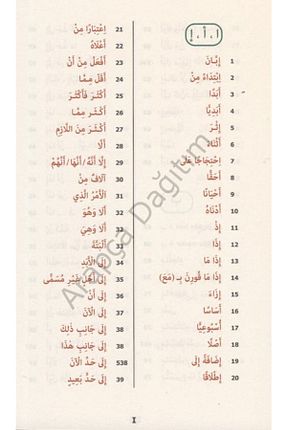 ا ، أ ، إ
1 إِبَّانَ
2 اِبْتِدَاءً مِنْ
3 أَبَدًا
4 أَبَدِيًّا
5 إِثْرَ
6 أَثْنَاءَ
7 اِحْتِجَاجًا عَلَى
8 أَحَقًّا
9 أَحْيَانًا
10 أَدْنَاهُ
11 إِذْ
12 إِذَا
13 إِذَا مَا
14 إِذَا مَا قُورِنَ بِـ (مَعَ)
15 إِزَاءَ
16 أَسَاسًا
17 أُسْبُوعِيًّا
18 أَصْلًا
19 إِضَافَةً إِلَى
20 إِطْلَاقًا
21 اِعْتِبَارًا مِنْ
22 أَعْلَاهُ
23 أَفْعَلُ مِنْ أَنْ
24 أَقَلُّ مِمَّا
25 أَكْثَرَ فَأَكْثَرَ
26 أَكْثَرُ مِمَّا
27 أَكْثَرُ مِنَ اللَّازِمِ
28 أَلَا
30 إِلَّا أَنَّهُ/أَنَّهَا/أَنَّهُمْ
30 آلَافٌ مِنْ
31 اَلْأَمْرُ الَّذِي
32 أَلَا وَهُوَ
32 أَلَا وَهِيَ
33 أَلْبَتَّةَ
34 إِلَى الْأَبَدِ
35 إِلَى أَجَلٍ غَيْرِ مُسَمًّى
36 إِلَى أَنْ
37 إِلَى الْآنَ
38 إِلَى جَانِبِ ذَلِكَ
38 إِلَى جَانِبِ هَذَا
538 إِلَى حَدِّ الْآنَ
39 إِلَى حَدٍّ بَعِيدٍ
I
Arapça Dağıtım